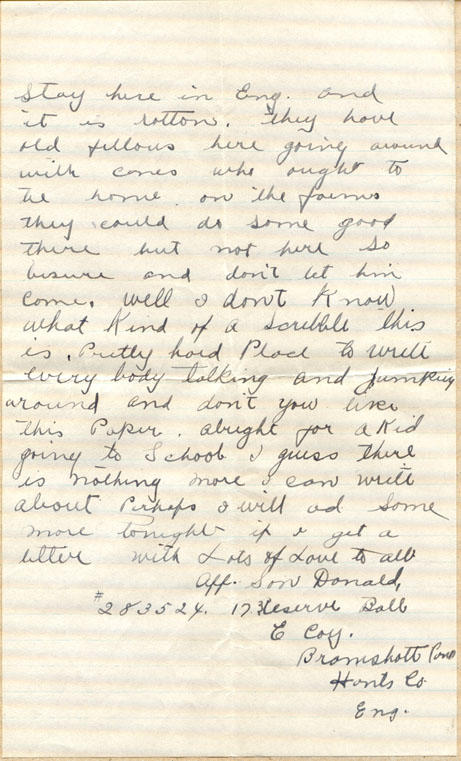 Stay here in Eng. and
it is rotton. They have
old fellous here going around
with canes who ought to
be home on the farms
they could do some good
there but not here so
besure and don't let him
come. Well I don't Know
what Kind of a scribble this
is. Pretty hard Place to write
every body talking and Jumking
around and don't you like
this Paper. alright for a Kid
going to School I guess there
is nothing more I can write
about Perhaps I will ad some
more tonight if I get a
letter with Lots of Love to all
Aff. Son Donald,
#283524. 17 Reserve Batt
E Coy.
Bramshott
Hants Co
Eng.